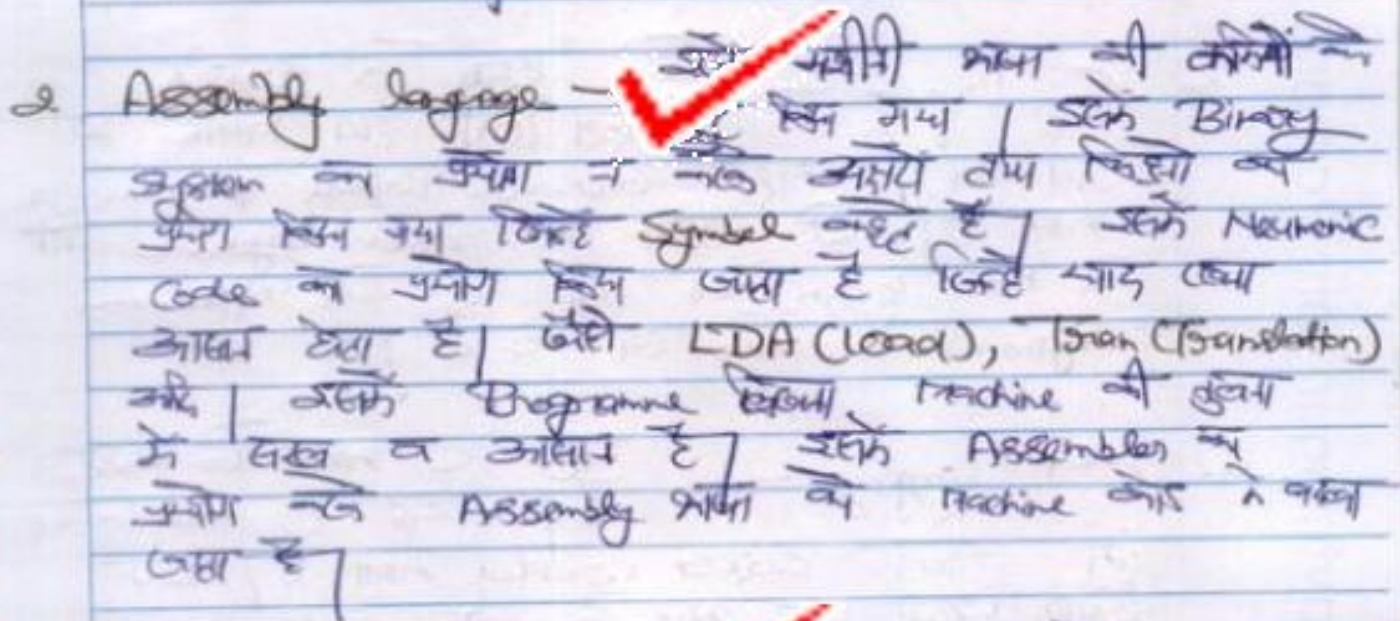 इसे मशीनी भाषा की कमियों के
2. Assembly language - किया गया | इसमें Binary
System का प्रयोग न करके अक्षरों तथा चिन्हों का
प्रयोग किया गया जिन्हें Symbol कहते हैं | इसमें Neumonic
Code का प्रयोग किया जाता है जिन्हें याद रखना
आसान होता है | जैसे LDA (Load), Tran (Translation)
आदि | इसमें Programme लिखना Machine की तुलना
में सरल व आसान है | इसमें Assembler का
प्रयोग करके Assembly भाषा को Machine कोड में बदला
जाता है |